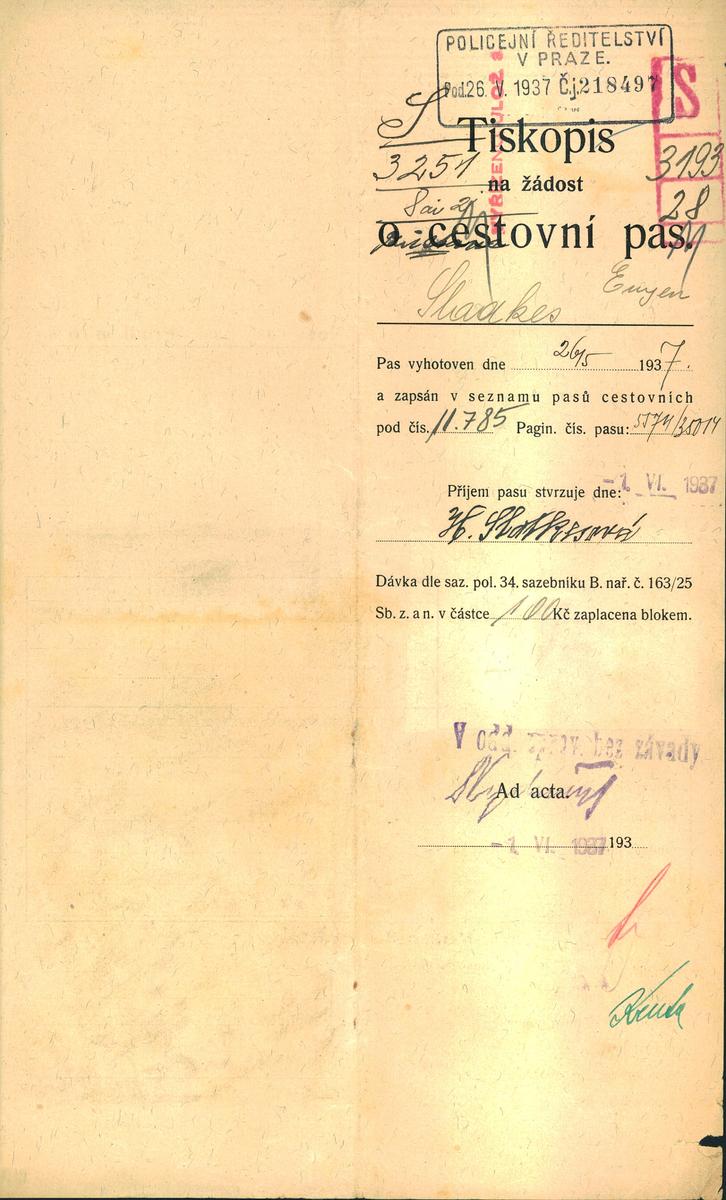 POLICEJNÍ ŘEDITELSTVÍ
V PRAZE.
Pod. 26. V. 1937 Čj. 218497
S
S
Tiskopis
3251
3193
na žádost
28
o cestovní pas.
Eugen
Sladkes
Pas vyhotoven dne 26/5 1937.
a zapsán v seznamu pasů cestovních
pod čís. 11.785 Pagin. čís. pasu:
Příjem pasu stvrzuje dne: -1. VI. 1937
H.
Dávka dle saz. pol. 34. sazebníku B. nař. č. 163/25
Sb. z. a n. v částce 100 Kč zaplacena blokem.
V odd. bez závady
Ad acta.
-1. VI. 1937 193